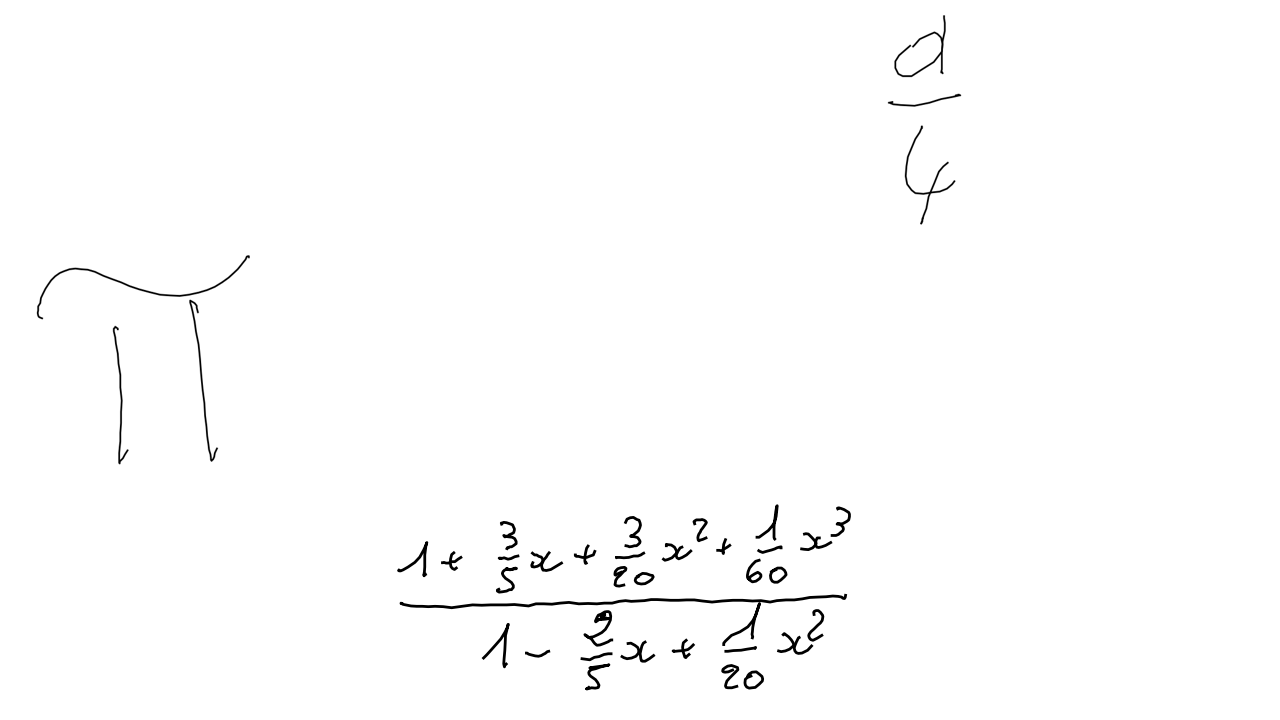 d/4
π
(1 + 3/5 x + 3/20 x² + 1/60 x³)/(1 - 2/5 x + 1/20 x²)